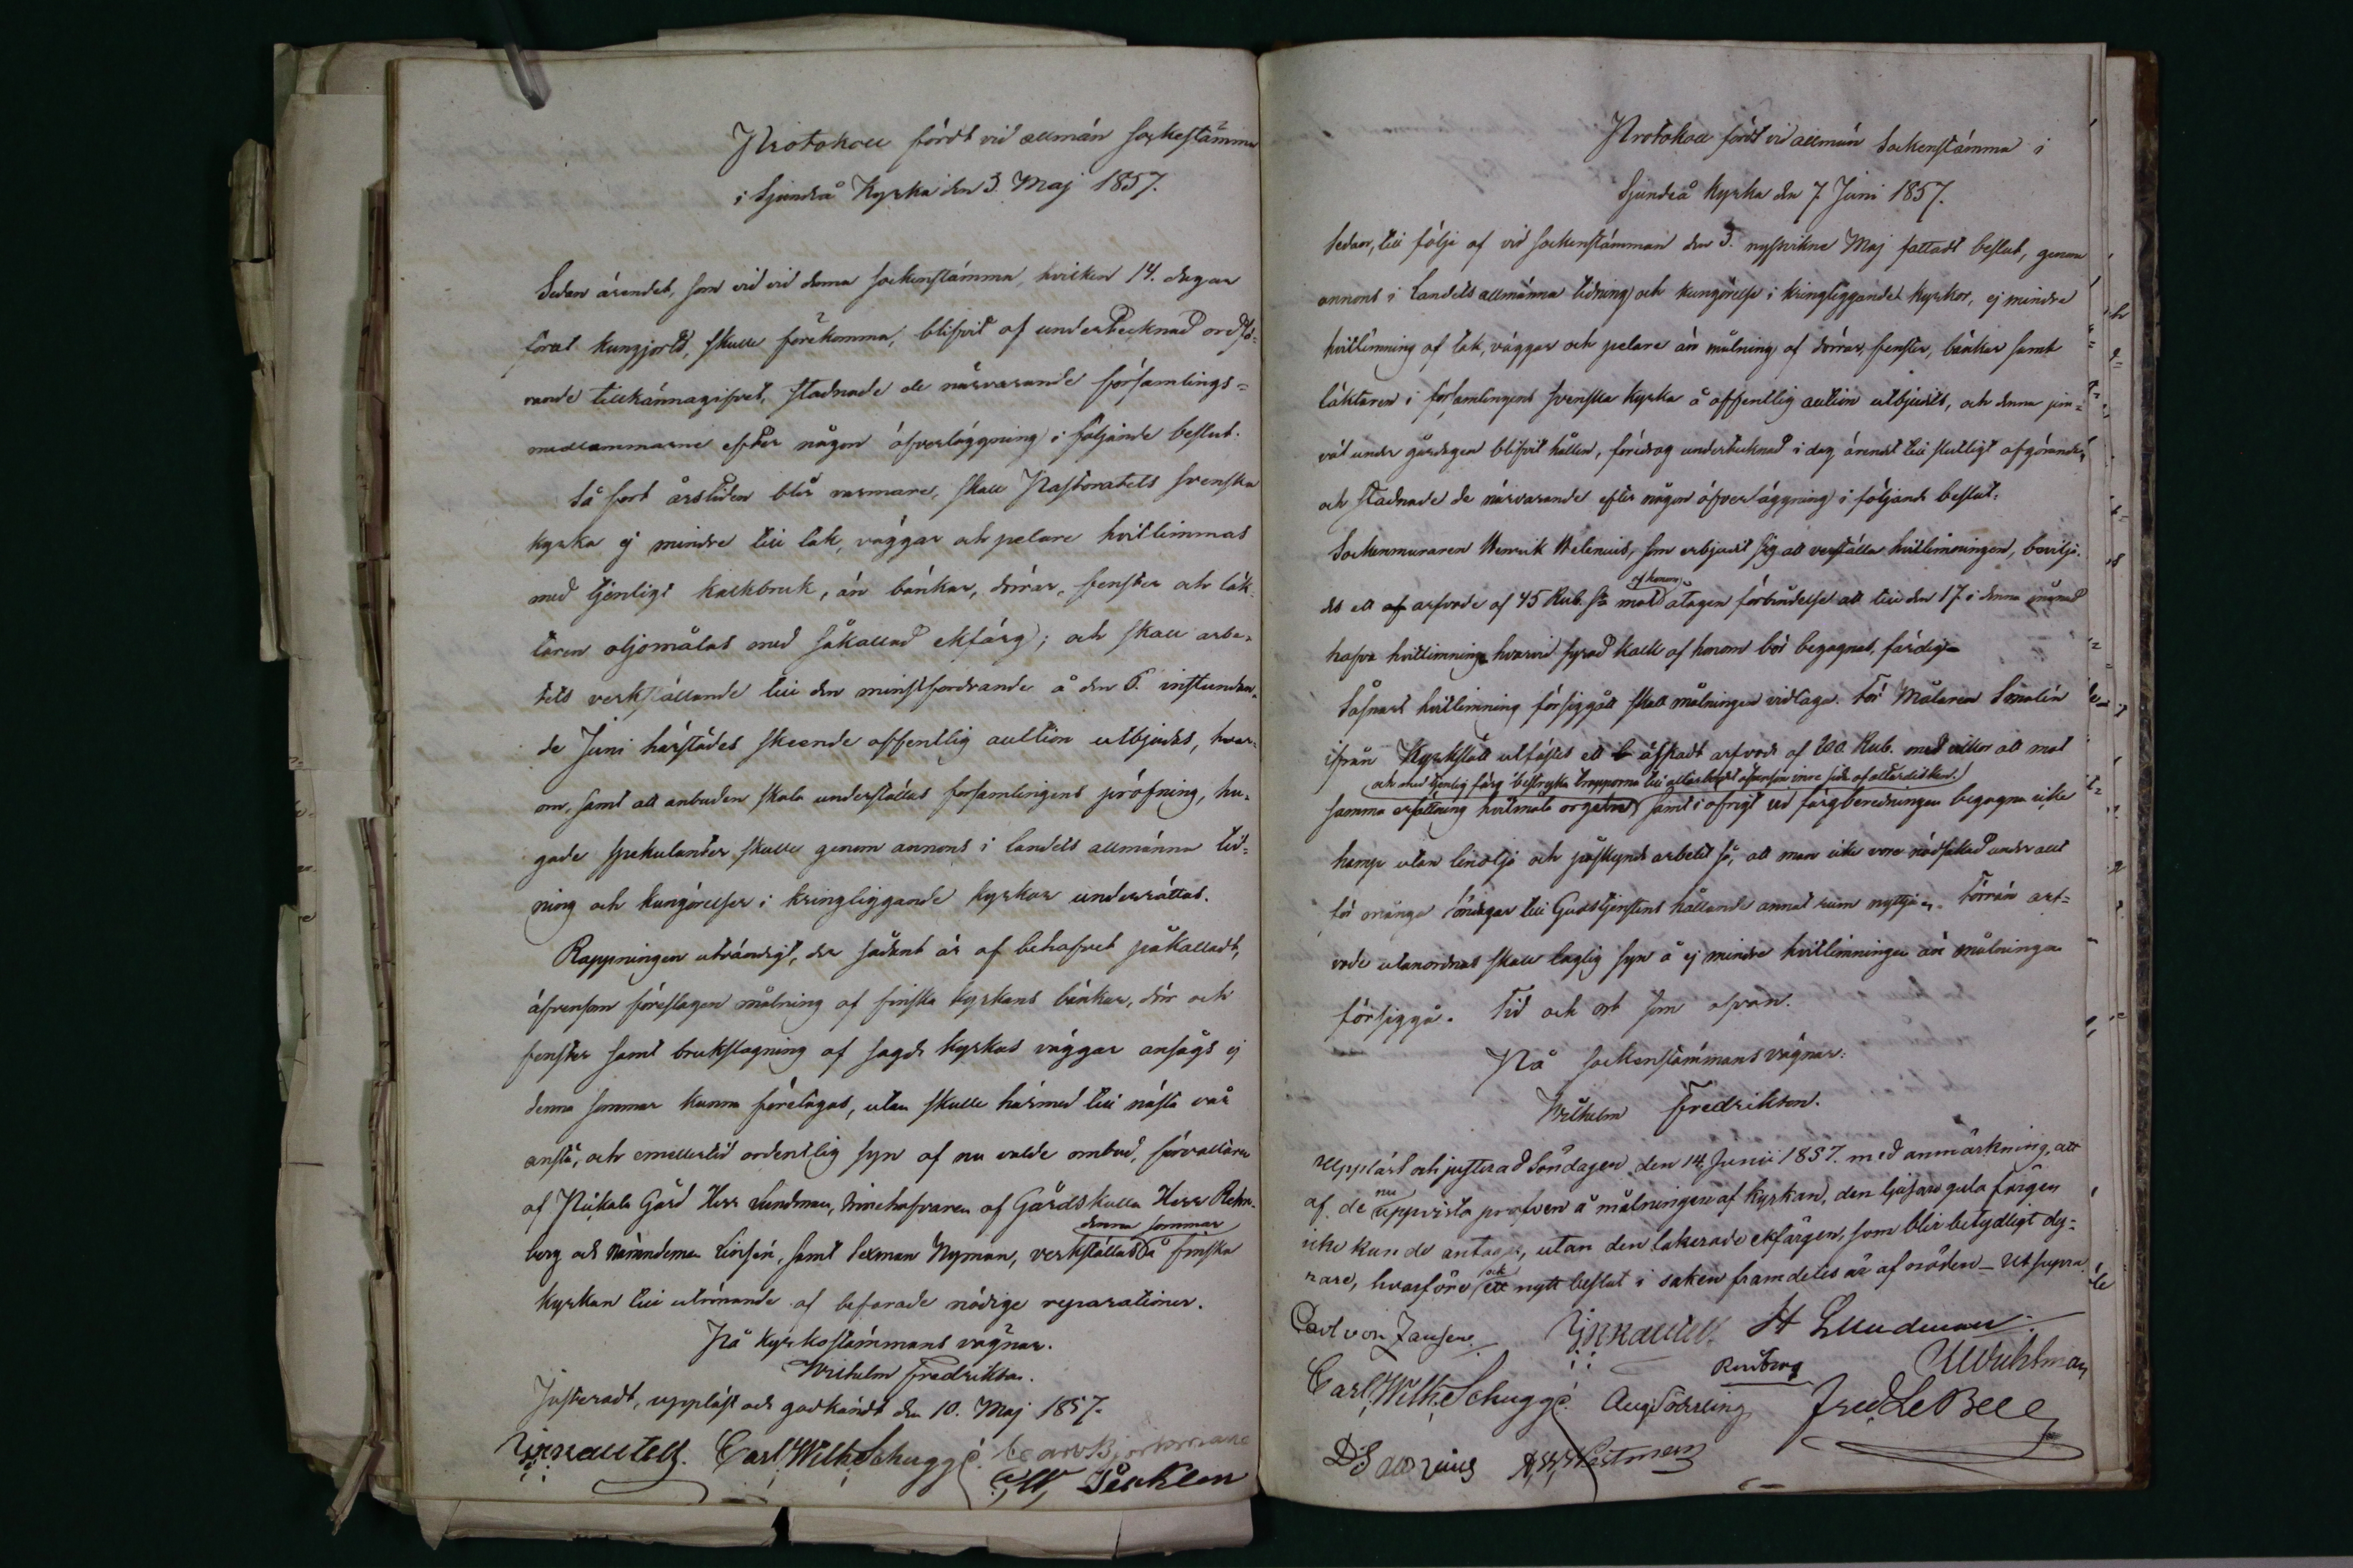 Protokoll fördt vid allmän sockestämma
i Sjundeå Kyrka den 3. Maj 1857.
Sedan ärendet, som vid vid denna sockenstämma, hvilken 14. dagar
förut kungjorts, skulle förekomma, blifvit af undertecknad ordfö-
rande tillkännagifvet, stadnade de närvarande församlings-
medlemmarne efter någon öfverläggning i följande beslut.
Så fort årstiden blir varmare, skall Pastoratets svenska
kyrka ej mindre till tak, väggar och pelare hvitlimmas
med tjenligt kalkbruk, än bänkar, dörrar, fenster och läk-
taren oljomålas med såkallad ekfärg; och skall arbe-
tets verkställande till den minstfordrande å den 6. instundan-
de Juni härstädes skeende offentlig auktion utbjudas, hvar-
om, samt att anbuden skola underställas församlingens pröfning, hu-
gade spekulanter skulle genom annons i landets allmänna tid-
ning och kungörelser i kringliggande kyrkor underrättas.
Rappningen utvändigt, der sådant är af behofvet påkalladt,
äfvensom föreslagen målning af finska kyrkans bänkar, dör och
fenster samt brukslagning af sagde kyrkas väggar ansågs ej
denna sommar kunna företagas, utan skulle härmed till nästa vår
anstå, och emellertid ordentlig syn af nu valde ombud, förvaltaren
af Pickala Gård Herr Lundman, innehafvaren af Gårdskulla Herr Rehn-
berg och Nämndeman Linsén, samt Sexman Nyman, verkställas denna sommar å finska
kyrkan till utrönande af befarade nödige reparationer.
På kyrkostämmans vägnar.
Wilhelm Fredrikson.
Justeradt, uppläst och godkändt den 10. Maj 1857.
Carl Wilh Schuggé
Protokoll fördt vid allmän Sockenstämma i
Sjundeå kyrka den 7. Juni 1857.
Sedan, till följe af vid sockenstämman den 3. nyssvikne Maj fattadt beslut, genom
annons i Landets allmänna tidning och kungörelse i kringliggande kyrkor, ej mindre
hvitlimning af tak, väggar och pelare än målning af dörrar, fenster, bänkar samt
läktaren i församlingens svenska kyrka å offentlig auktion utbjudits, och denna jem-
väl under gårdagen blifvit hållen, föredrog undertecknad i dag ärendet till slutligt afgörande,
och stadnade de närvarande efter någon öfverläggning i följande beslut:
Sockenmuraren Henrik Helenius, som erbjudit sig att verkställa hvitlimningen, bevilja-
des ett arfvode af 45 Rub. Sr mot af honom åtagen förbindelse att till den 17 i denna månad
hafva hvitlimning, hvarvid syrad kalk af honom bör begagnas, färdig.
Såsnart hvitlimning försiggått skall målningen vidtaga. För Målaren Smalén
ifrån Kyrkslätt utfästes ett äskadt arfvode af 200 Rub. med vilkor att mot
och med tjenlig färg bestryka trapporna till altarbordet äfvensom inre sida af altardisken.
samma ersättning hvitmåla orgelne samt i öfrigt vid färgberedningen begagna icke
hamp utan linolja och påskynda arbetet så, att man icke vore nödsakad under allt
för många Söndagar till Gudstjenstens hållande annat rum nyttja. Förrän arf-
vode utanordnas skall laglig syn å ej mindre hvitlimningen än målningen
försiggå. Tid och ort som ofvan.
På Sockenstämmans vägnar:
Wilhelm Fredrikson.
Uppläst och justerad Söndagen den 14 Junii 1857. med anmärkning, att
af de nu uppvista profven å målningen af kyrkan, den ljusare gula färgen
icke kunde antagas, utan den lakerade ekfärgen, som blir betydligt dy-
rare, hvarföre ock ett nytt beslut i saken framdeles är af nöden – Ut supra
Carl von Jansen H Lundman
Carl Wilh Schuggé Aug Söderling Fred LeBell